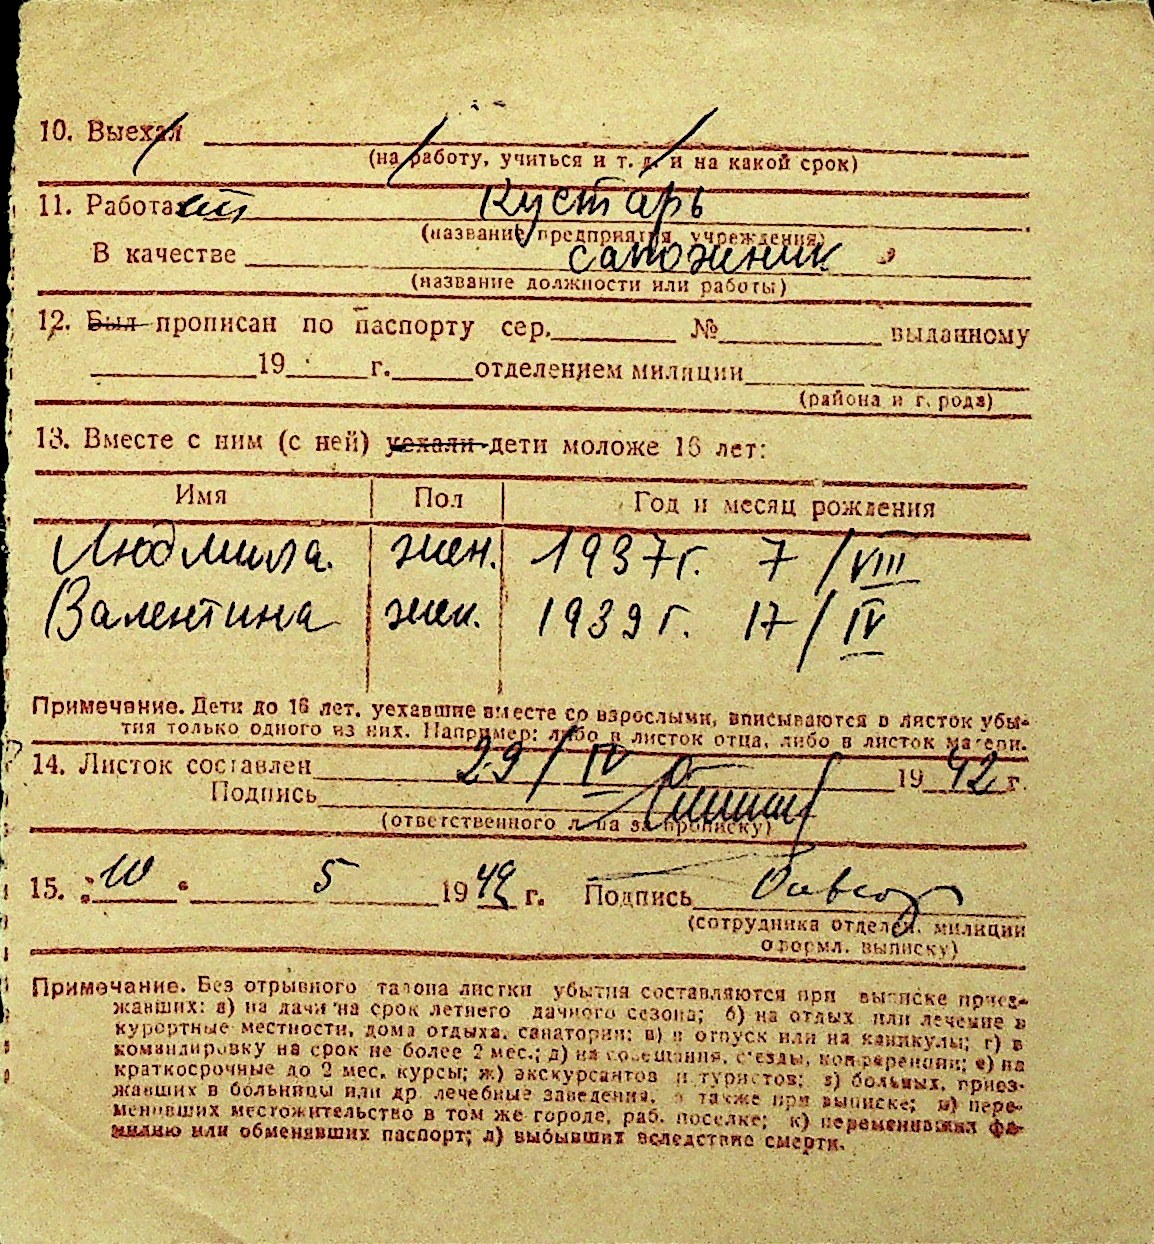 10. Выехал
(на работу, учиться и т. д. и на какой срок)
11. Работает Кустарь
(название предприятия, учреждения)
В качестве сапожник
(название должности или работы)
12. Был прописан по паспорту сер. № выданному
19 г. отделением милиции
(района и города)
13. Вместе с ним (с ней) уехали дети моложе 16 лет:
Имя Пол Год и месяц рождения
Людмила. жен. 1937г. 7/VIII
Валентина жен. 1939г. 17/IV
Примечание. Дети до 16 лет, уехавшие вместе со взрослыми, вписываются в листок убы-
тия только одного из них. Например: либо в листок отца, либо в листок матери.
14. Листок составлен 29/IV 1942 г.
Подпись
(ответственного лица за прописку)
15. 10 5 1942 г. Подпись
(сотрудника отделен. милиции
оформл. выписку)
Примечание. Без отрывного талона листки убытия составляются при выписке приез-
жавших: а) на дачи на срок летнего дачного сезона; б) на отдых или лечение в
курортные местности, дома отдыха, санатории; в) в отпуск или на каникулы; г) в
командировку на срок не более 2 мес.; д) на совещания, с'езды, конференции; е) на
краткосрочные до 2 мес. курсы; ж) экскурсантов и туристов; з) больных, приез-
жавших в больницы или др. лечебные заведения, а также при выписке; и) пере-
менивших местожительство в том же городе, раб. поселке; к) переменивших фа-
милию или обменявших паспорт; л) выбывших вследствие смерти.